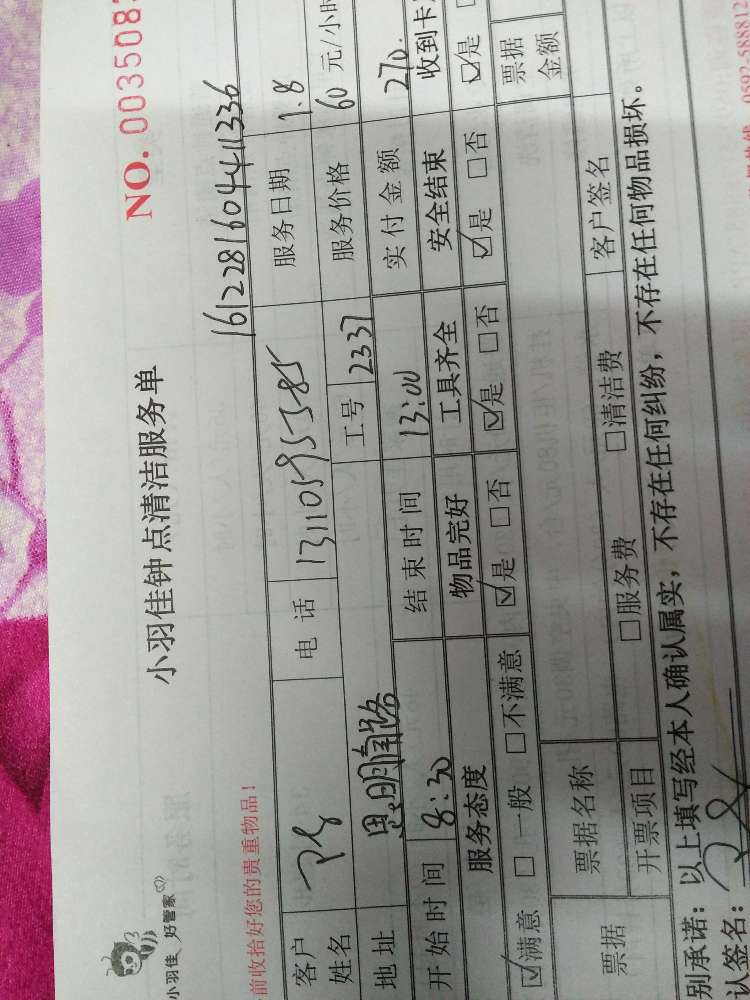 小羽佳 好管家
NO. 003508
小羽佳钟点清洁服务单
前收拾好您的贵重物品!
1612281604411336
客户姓名 电话 13110595385 服务日期 1.8
地址 思明南路 工号 2337 服务价格 60 元/小时
开始时间 8:30 结束时间 13:00 实付金额 270.
服务态度 物品完好 工具齐全 安全结束 收到卡
☑满意 □一般 □不满意 ☑是 □否 ☑是 □否 ☑是 □否 ☑是
票据 票据名称 票据金额
开票项目 □服务费 □清洁费 客户签名
别承诺：以上填写经本人确认属实，不存在任何纠纷，不存在任何物品损坏。
认签名：
0592-588812